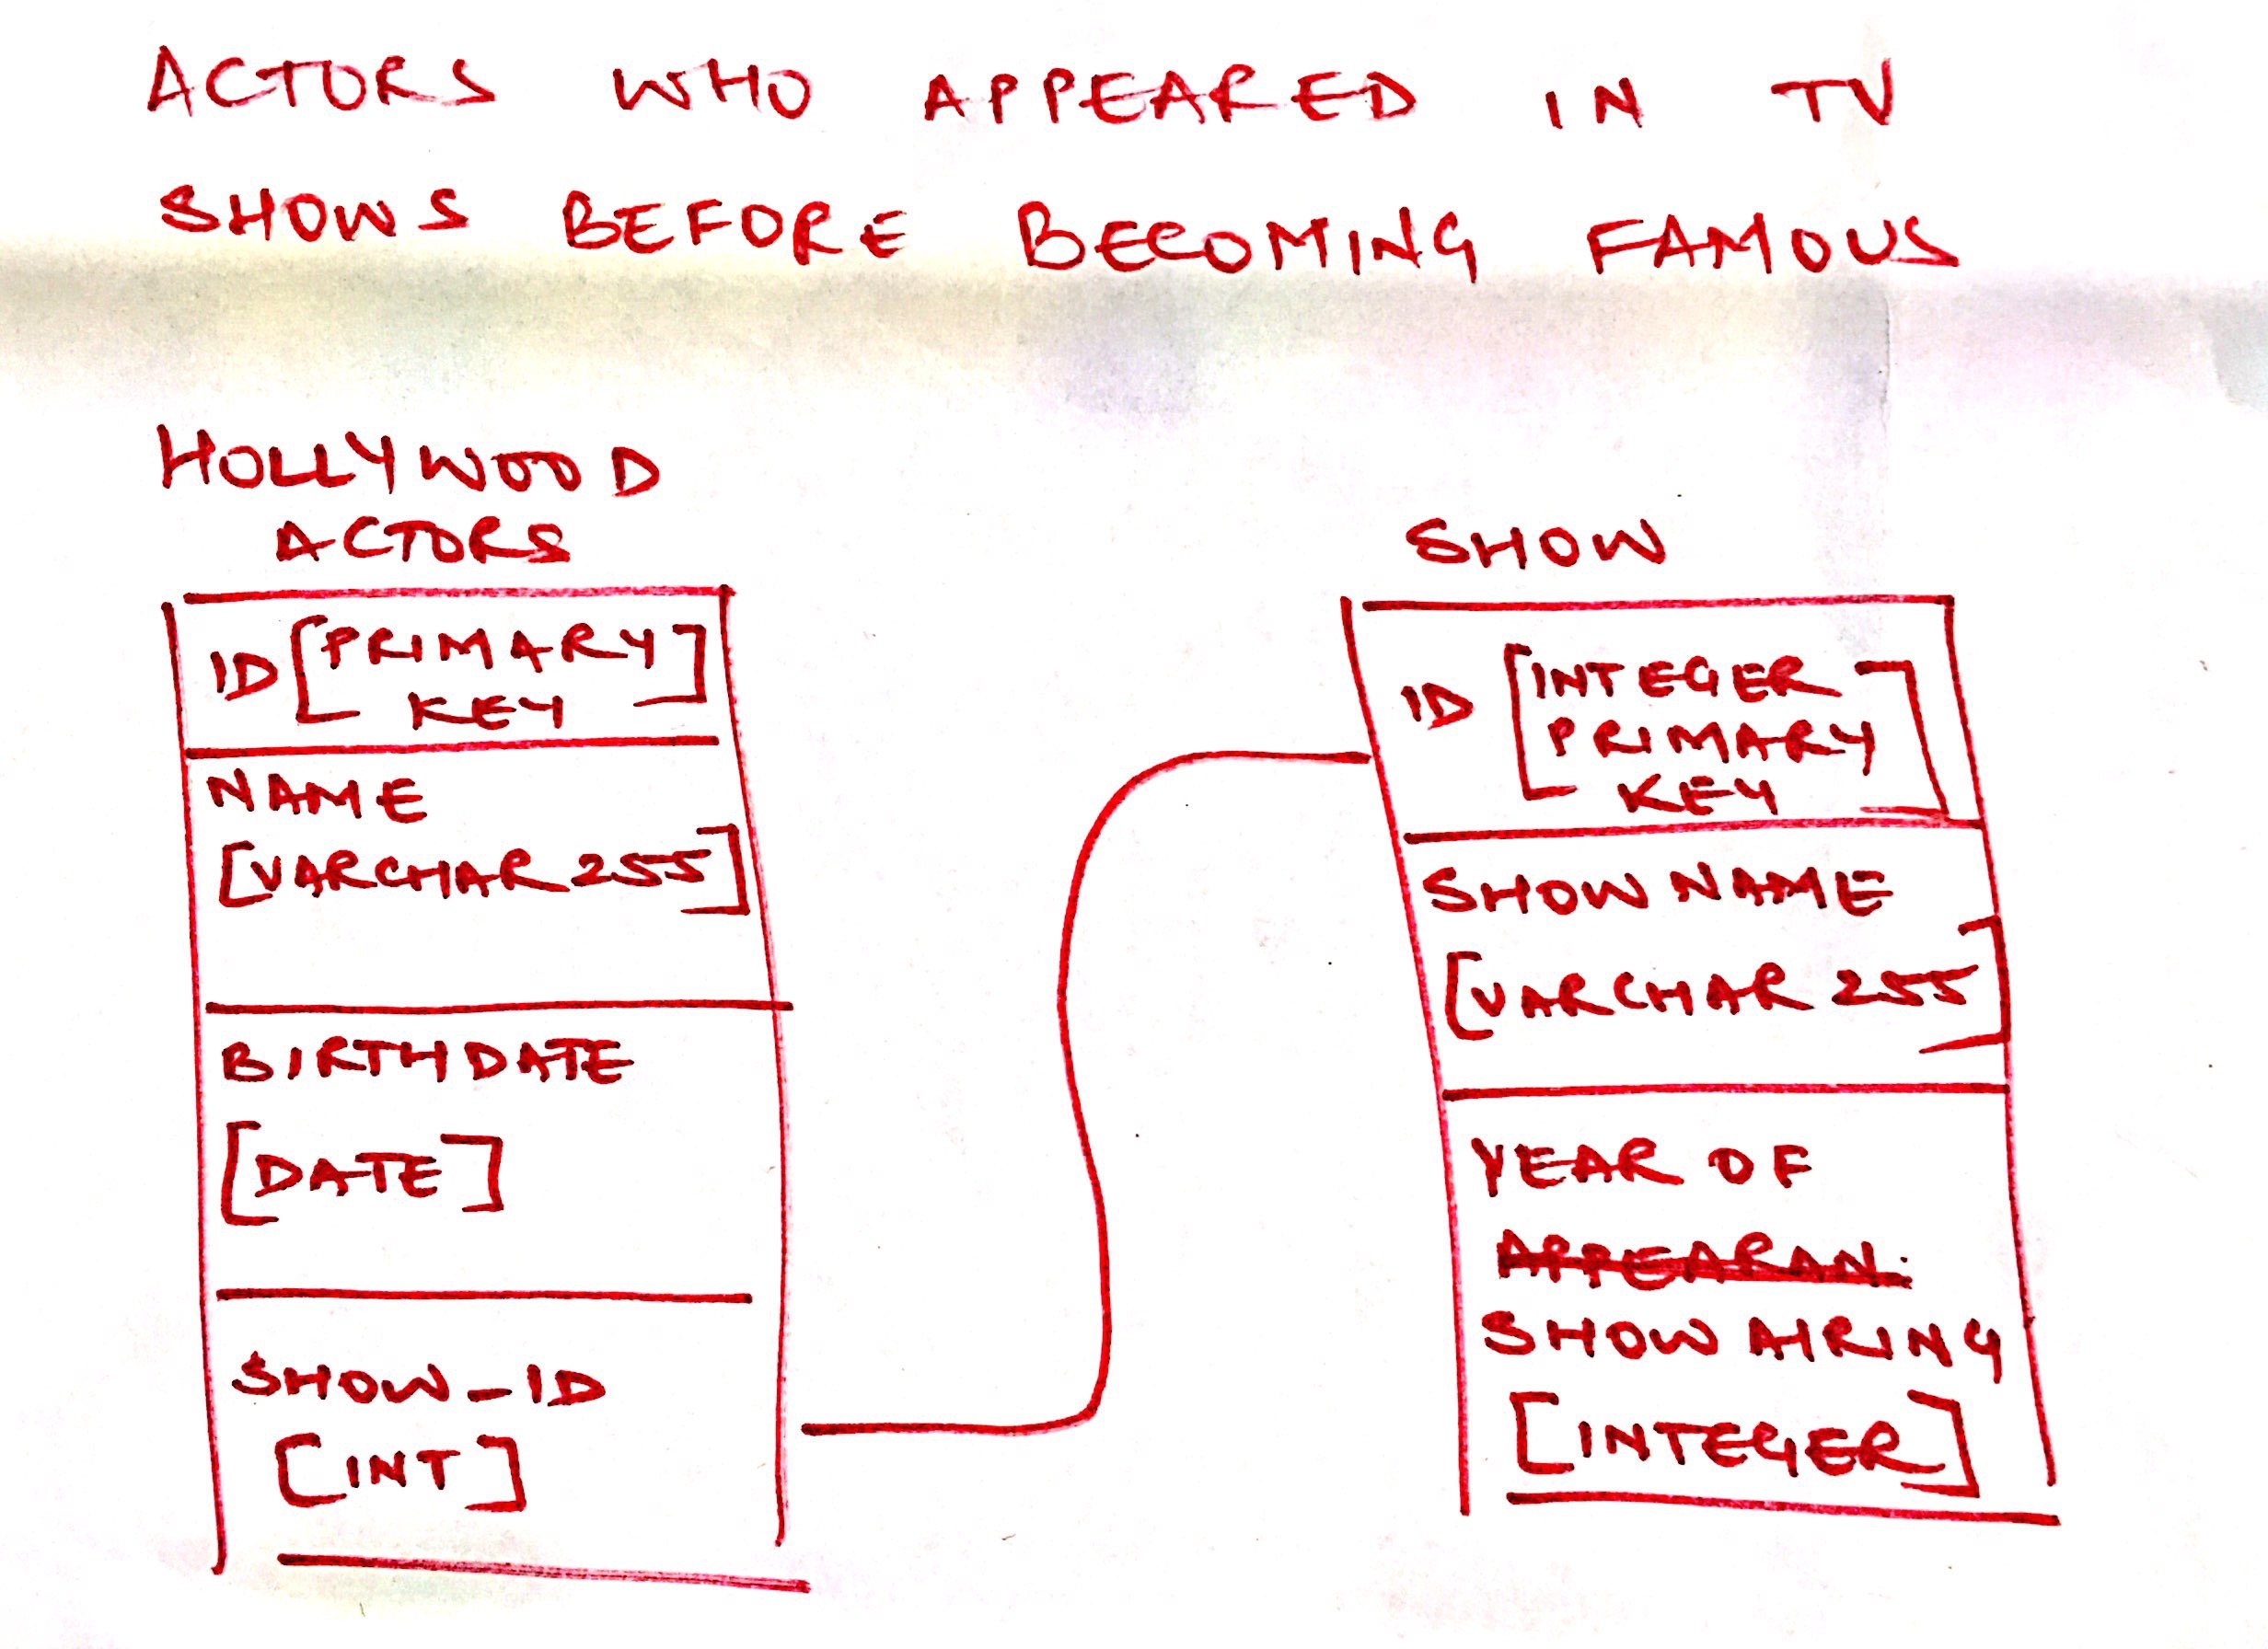 ACTORS WHO APPEARED IN TV
SHOWS BEFORE BECOMING FAMOUS
HOLLYWOOD
ACTORS
ID [PRIMARY
KEY]
NAME
[VARCHAR 255]
BIRTHDATE
[DATE]
SHOW_ID
[INT]
SHOW
ID [INTEGER
PRIMARY
KEY]
SHOW NAME
[VARCHAR 255]
YEAR OF
APPEARAN.
SHOW AIRING
[INTEGER]